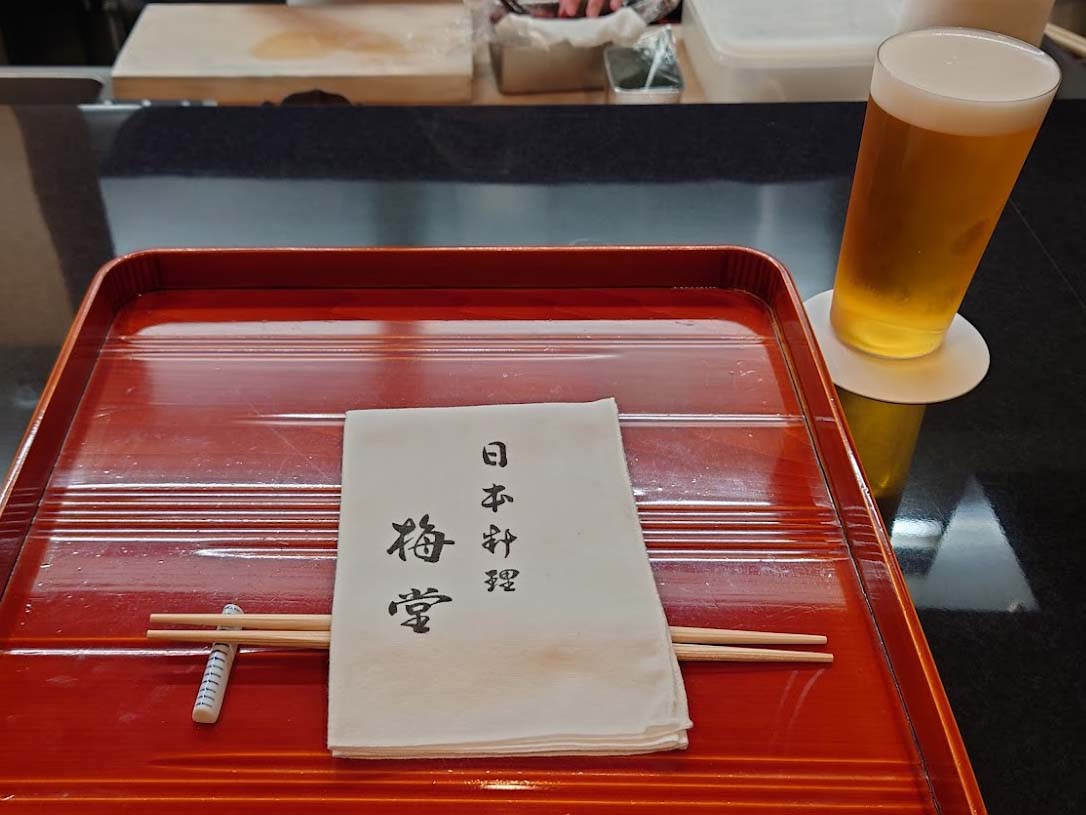 日本料理
梅堂